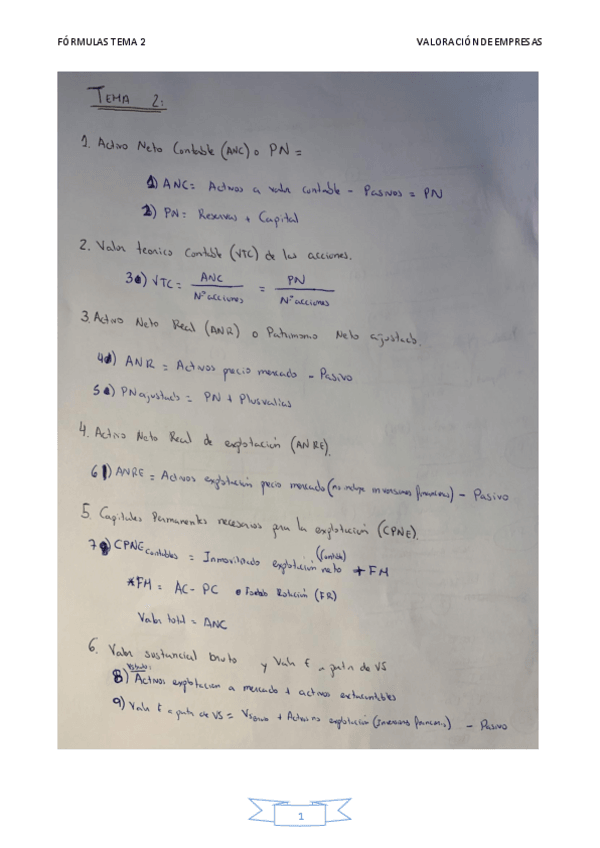 FÓRMULAS TEMA 2 VALORACIÓN DE EMPRESAS
TEMA 2:
1. Activo Neto Contable (ANC) o PN =
1) ANC = Activos a valor contable - Pasivos = PN
2) PN = Reservas + Capital
2. Valor teorico Contable (VTC) de las acciones.
3) VTC = ANC / Nº acciones = PN / Nº acciones
3. Activo Neto Real (ANR) o Patrimonio Neto ajustado.
4) ANR = Activos precio mercado - Pasivo
5) PN ajustado = PN + Plusvalias
4. Activo Neto Real de explotación (ANRE).
6) ANRE = Activos explotación precio mercado (no incluye inversiones financieras) - Pasivo
5. Capitales Permanentes necesarios para la explotación (CPNE).
7) CPNE contables = Inmovilizado explotación neto (contable) + FM
*FM = AC - PC o Fondo Rotación (FR)
Valor total = ANC
6. Valor sustancial bruto y Valor E a partir de VS
8) Activos explotacion a mercado + activos extracontables
9) Valor E a partir de VS = VSBruto + Activos no explotación (Inversiones financieras) - Pasivo
1